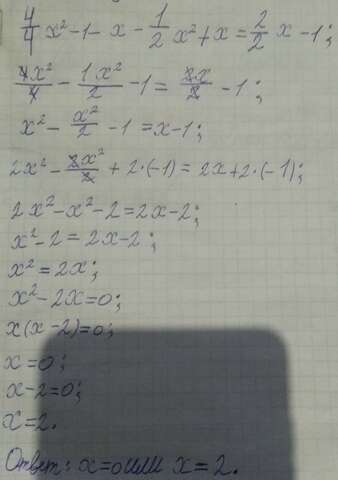 4/4 x² - 1 - x - 1/2 x² + x = 2/2 x - 1;
4x²/4 - 1x²/2 - 1 = 2x/2 - 1;
x² - x²/2 - 1 = x - 1;
2x² - 2x²/2 + 2·(-1) = 2x + 2·(-1);
2x² - x² - 2 = 2x - 2;
x² - 2 = 2x - 2;
x² = 2x;
x² - 2x = 0;
x(x - 2) = 0;
x = 0;
x - 2 = 0;
x = 2.
Ответ: x = 0 или x = 2.